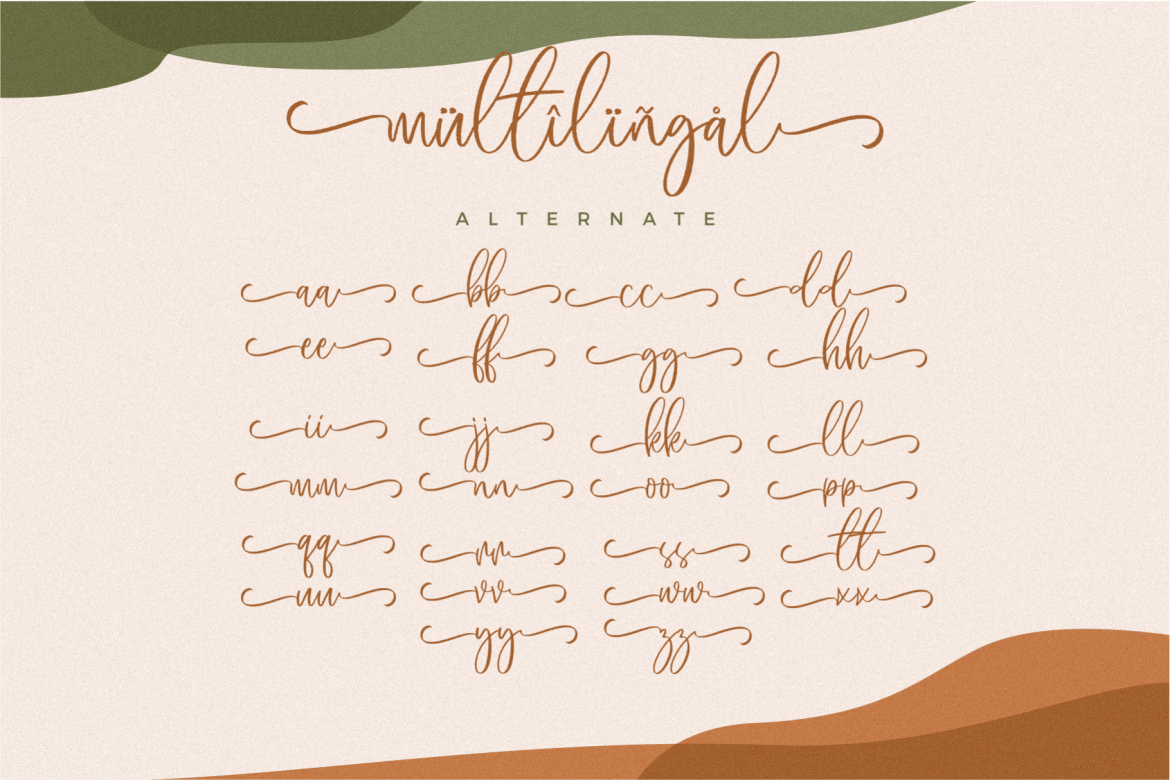 mültîlïñgål
ALTERNATE
aa bb cc dd
ee ff gg hh
ii jj kk ll
mm nn oo pp
qq rr ss tt
uu vv ww xx
yy zz